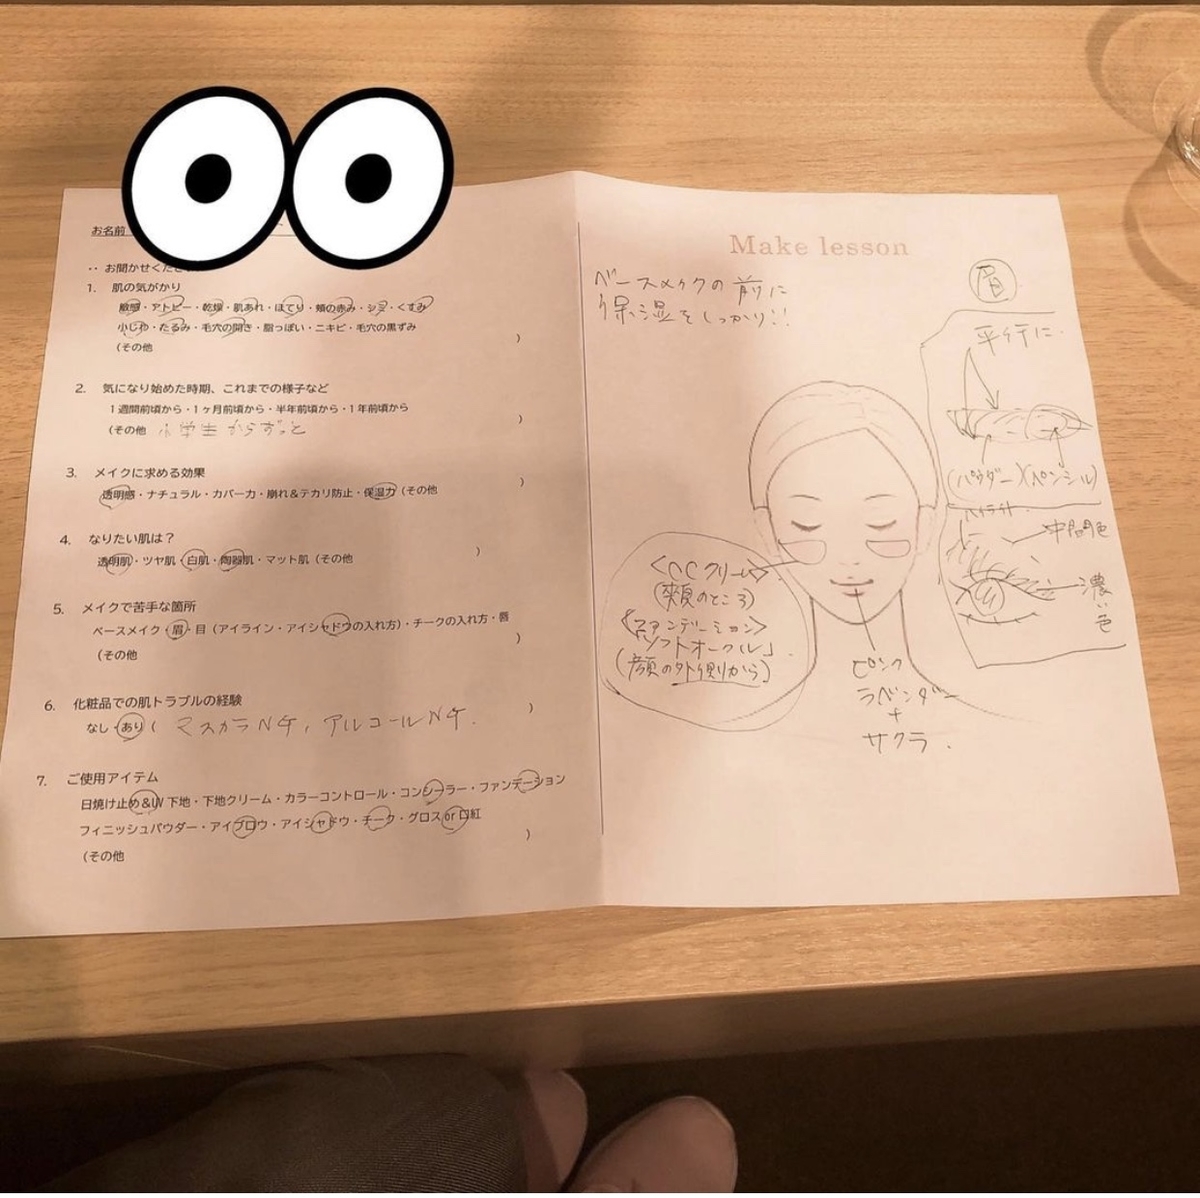 お名前
お聞かせくださ
1. 肌の気がかり
敏感・アトピー・乾燥・肌あれ・ほてり・頬の赤み・シミ・くすみ
小じわ・たるみ・毛穴の開き・脂っぽい・ニキビ・毛穴の黒ずみ
(その他 )
2. 気になり始めた時期、これまでの様子など
1週間前頃から・1ヶ月前頃から・半年前頃から・1年前頃から
(その他 小学生からずっと )
3. メイクに求める効果
透明感・ナチュラル・カバー力・崩れ&テカリ防止・保湿力 (その他 )
4. なりたい肌は?
透明肌・ツヤ肌・白肌・陶器肌・マット肌 (その他 )
5. メイクで苦手な箇所
ベースメイク・眉・目 (アイライン・アイシャドウの入れ方)・チークの入れ方・唇
(その他 )
6. 化粧品での肌トラブルの経験
なし・あり ( マスカラNG, アルコールNG. )
7. ご使用アイテム
日焼け止め&UV下地・下地クリーム・カラーコントロール・コンシーラー・ファンデーション
フィニッシュパウダー・アイブロウ・アイシャドウ・チーク・グロス or 口紅
(その他 )
Make lesson
ベースメイクの前に
保湿をしっかり!!
眉
平行に
(パウダー)(ペンシル)
ハイライト
中間色
濃い色
<CCクリーム>
(頬のところ)
<ファンデーション>
ソフトオークル」
(顔の外側から)
ピンク
ラベンダー
+
サクラ.